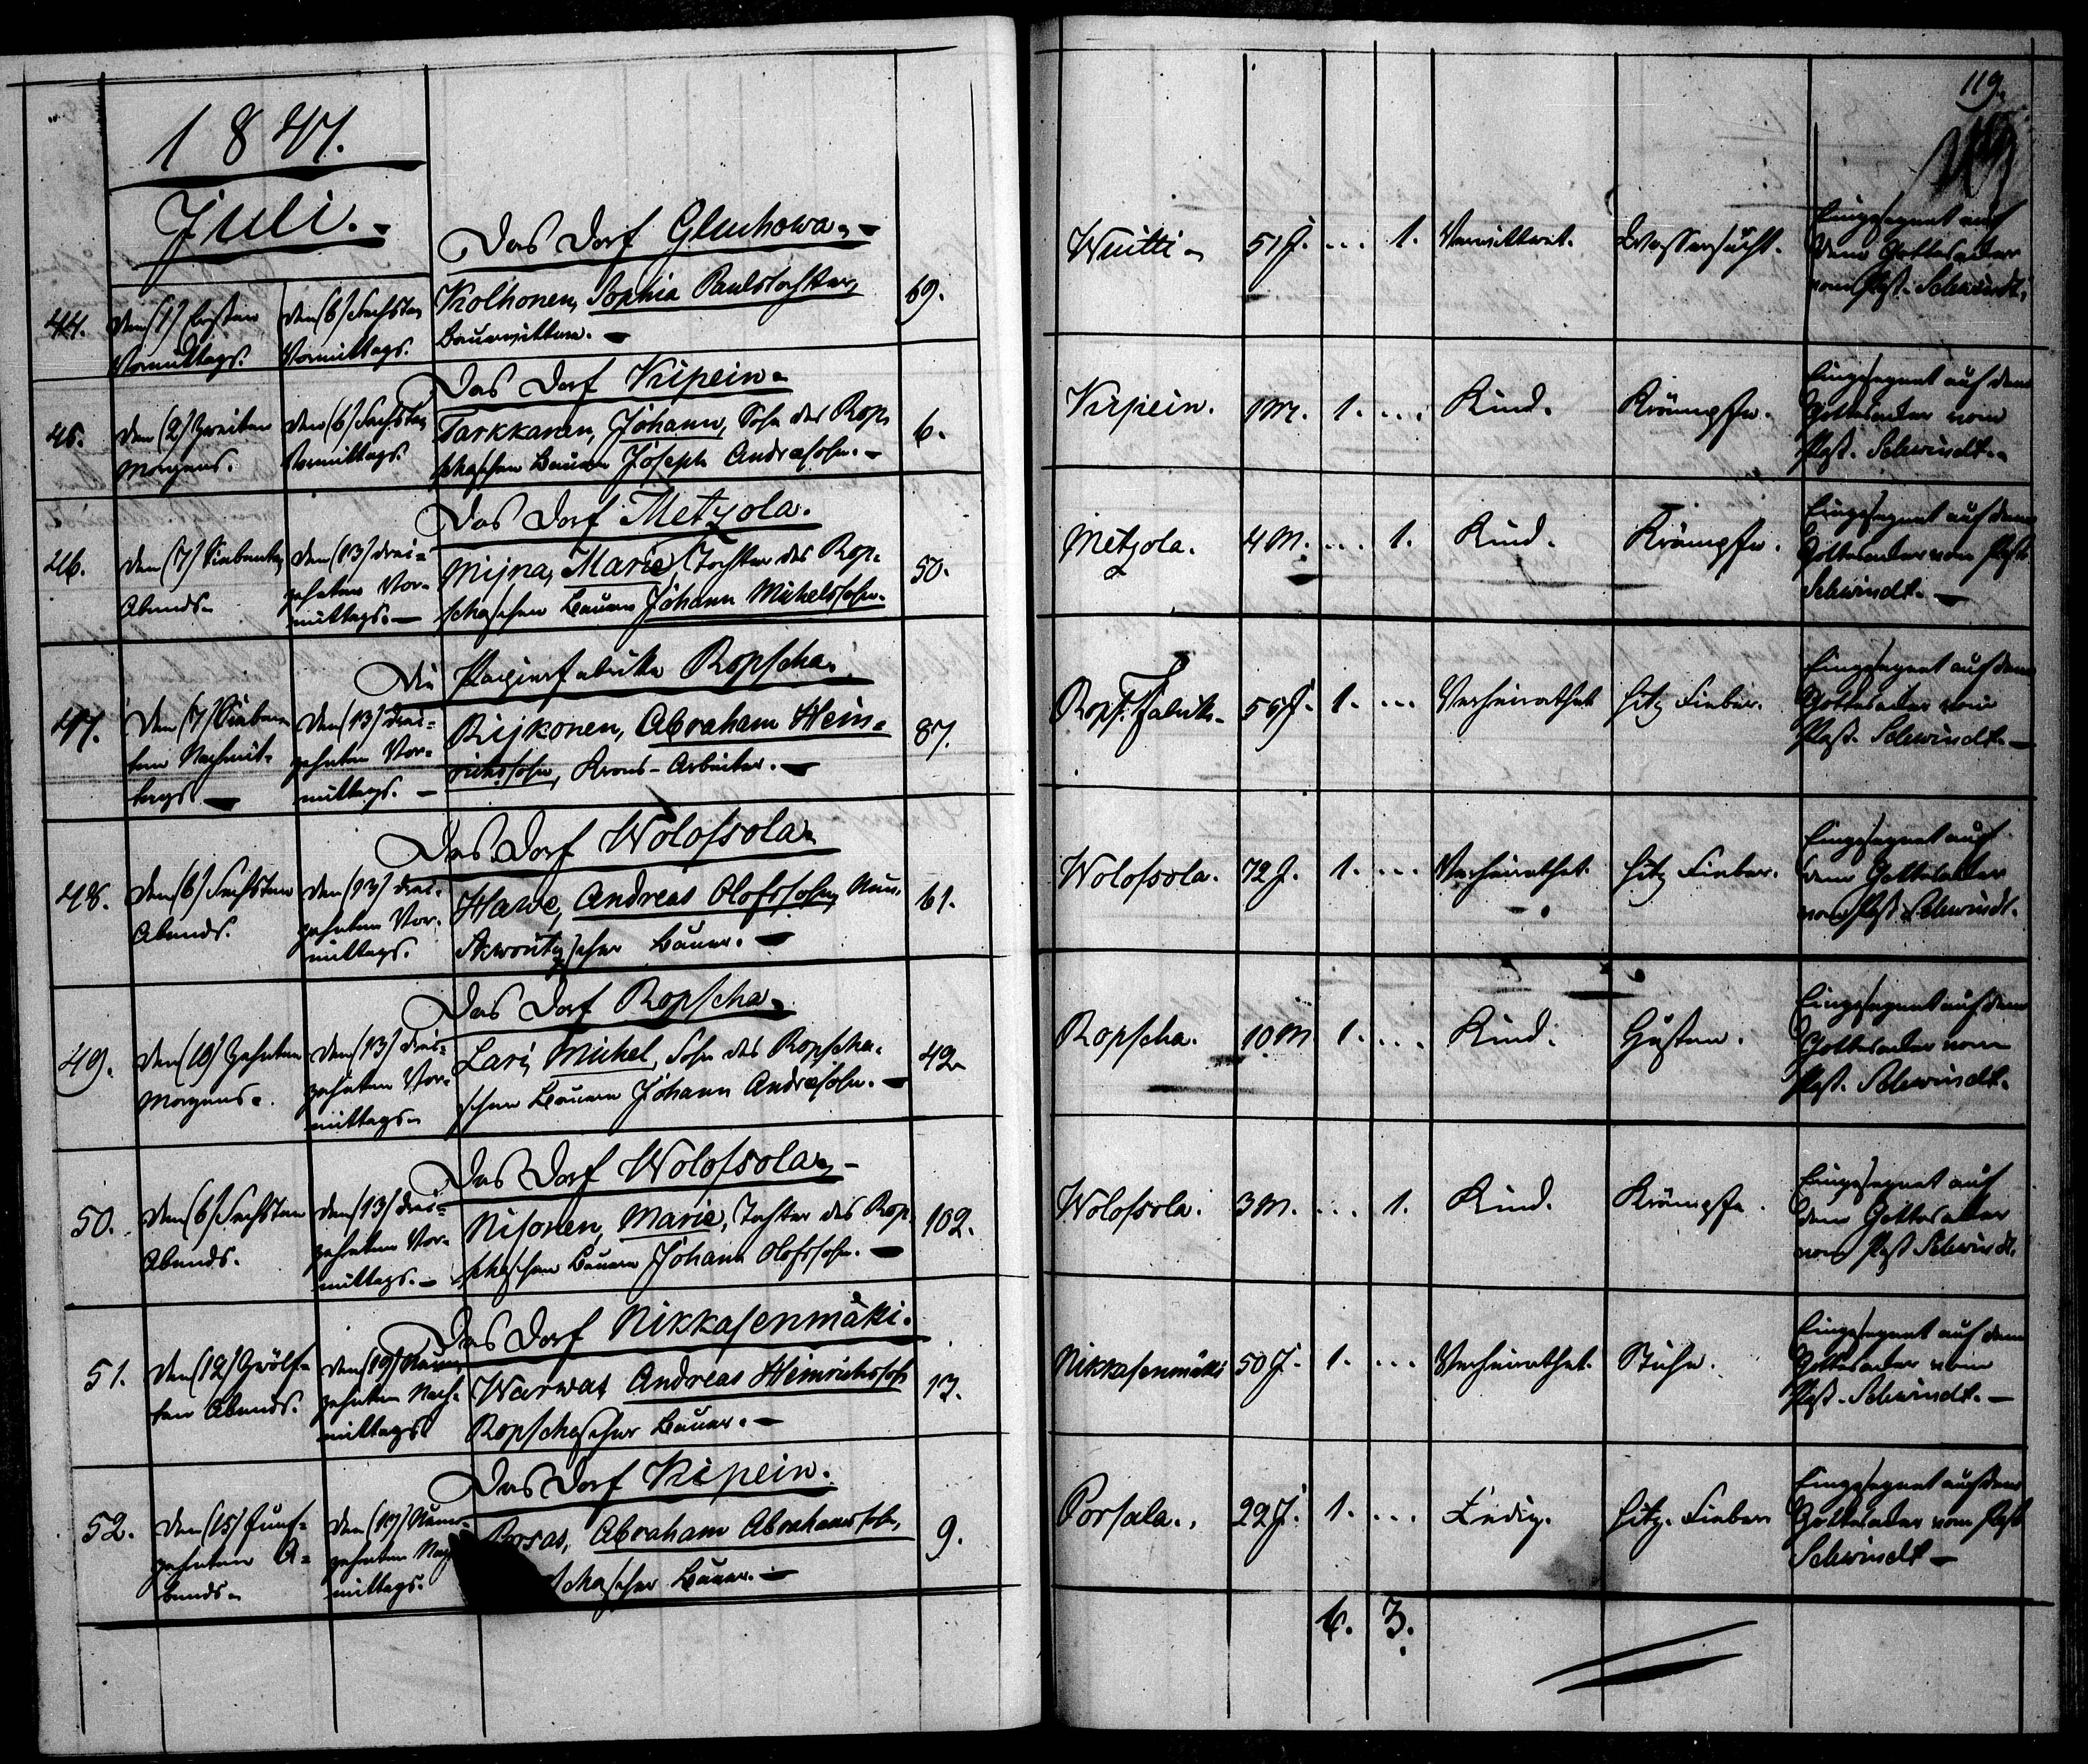 119.
1847.
Juli.
Das Dorf Gluchowa.
44. Den (1) Ersten
Vormittags.
Den (6) Sechsten
Vormittags.
Kolhonen, Sophia Paulstochter,
Bauerwittwe.
69.
Wuitti
51 J. ... 1. Verwittwet. Wassersucht.
Eingesegnet auf
dem Gottesacker
vom Past. Schwindt.
Das Dorf Kipein.
45. Den (2) Zweiten
Morgens.
Den (6) Sechsten
Vormittags.
Tarkkanen, Johann, Sohn des Rop-
schaschen Bauern Joseph Andreassohn.
6.
Kipein. 1 M. 1. ... Kind. Krämpfe.
Eingesegnet auf dem
Gottesacker vom
Past. Schwindt.
Das Dorf Metzola.
46. Den (7) Siebenten
Abends.
Den (13) Drei-
zehnten Vor-
mittags.
Mijna, Marie, Tochter des Rop-
schaschen Bauern Johann Michelssohn.
50.
Metzola. 4 M. ... 1. Kind. Krämpfe.
Eingesegnet auf dem
Gottesacker vom Past.
Schwindt.
Die Papierfabrike Ropscha.
47. Den (7) Sieben-
ten Nachmit-
tags
Den (13) Drei-
zehnten Vor-
mittags.
Rijkonen, Abraham Hein-
richssohn, Krons-Arbeiter.
87.
Ropf. Fabrik. 55 J. 1. ... Verheirathet Hitz Fieber.
Eingesegnet auf dem
Gottesacker vom
Past. Schwindt.
Das Dorf Wolossola
48. Den (6) Sechsten
Abends.
Den (13) Drei-
zehnten Vor-
mittags.
Hawe, Andreas Olofssohn,
Bauer.
61.
Wolossola. 72 J. 1. ... Verheirathet. Hitz Fieber.
Eingesegnet auf
dem Gottesacker
vom Past. Schwindt.
Das Dorf Ropscha.
49. Den (10) Zehnten
Morgens.
Den (13) Drei-
zehnten Vor-
mittags.
Lari, Michel, Sohn des Ropscha-
schen Bauern Johann Andreassohn.
42.
Ropscha. 10 M 1. ... Kind. Husten.
Eingesegnet auf dem
Gottesacker vom
Past. Schwindt.
Das Dorf Wolossola.
50. Den (6) Sechsten
Abends.
Den (13) Drei-
zehnten Vor-
mittags.
Nisonen, Marie, Tochter des Rop-
schaschen Bauern Johann Olofssohn.
102.
Wolossola. 3 M. ... 1. Kind. Krämpfe.
Eingesegnet auf
dem Gottesacker
vom Past Schwindt.
Das Dorf Nikkasenmäki.
51. Den (12) Zwölf-
ten Abends.
Den (19) Neun-
zehnten Nach-
mittags
Warwas Andreas Heinrichssohn
Ropschascher Bauer.
13.
Nikkasenmäki 50 J. 1. ... Verheirathet.
Eingesegnet auf dem
Gottesacker vom
Past. Schwindt.
Das Dorf Kipein.
52. Den (15) Fünf-
zehnten A-
bends
Den (19) Neun-
zehnten Nach-
mittags.
Porsas, Abraham Abrahamssohn,
schascher Bauer.
9.
Porsala. 22 J. 1. ... Ledig. Hitz. Fieber
Eingesegnet auf dem
Gottesacker vom Past
Schwindt
6. 3.